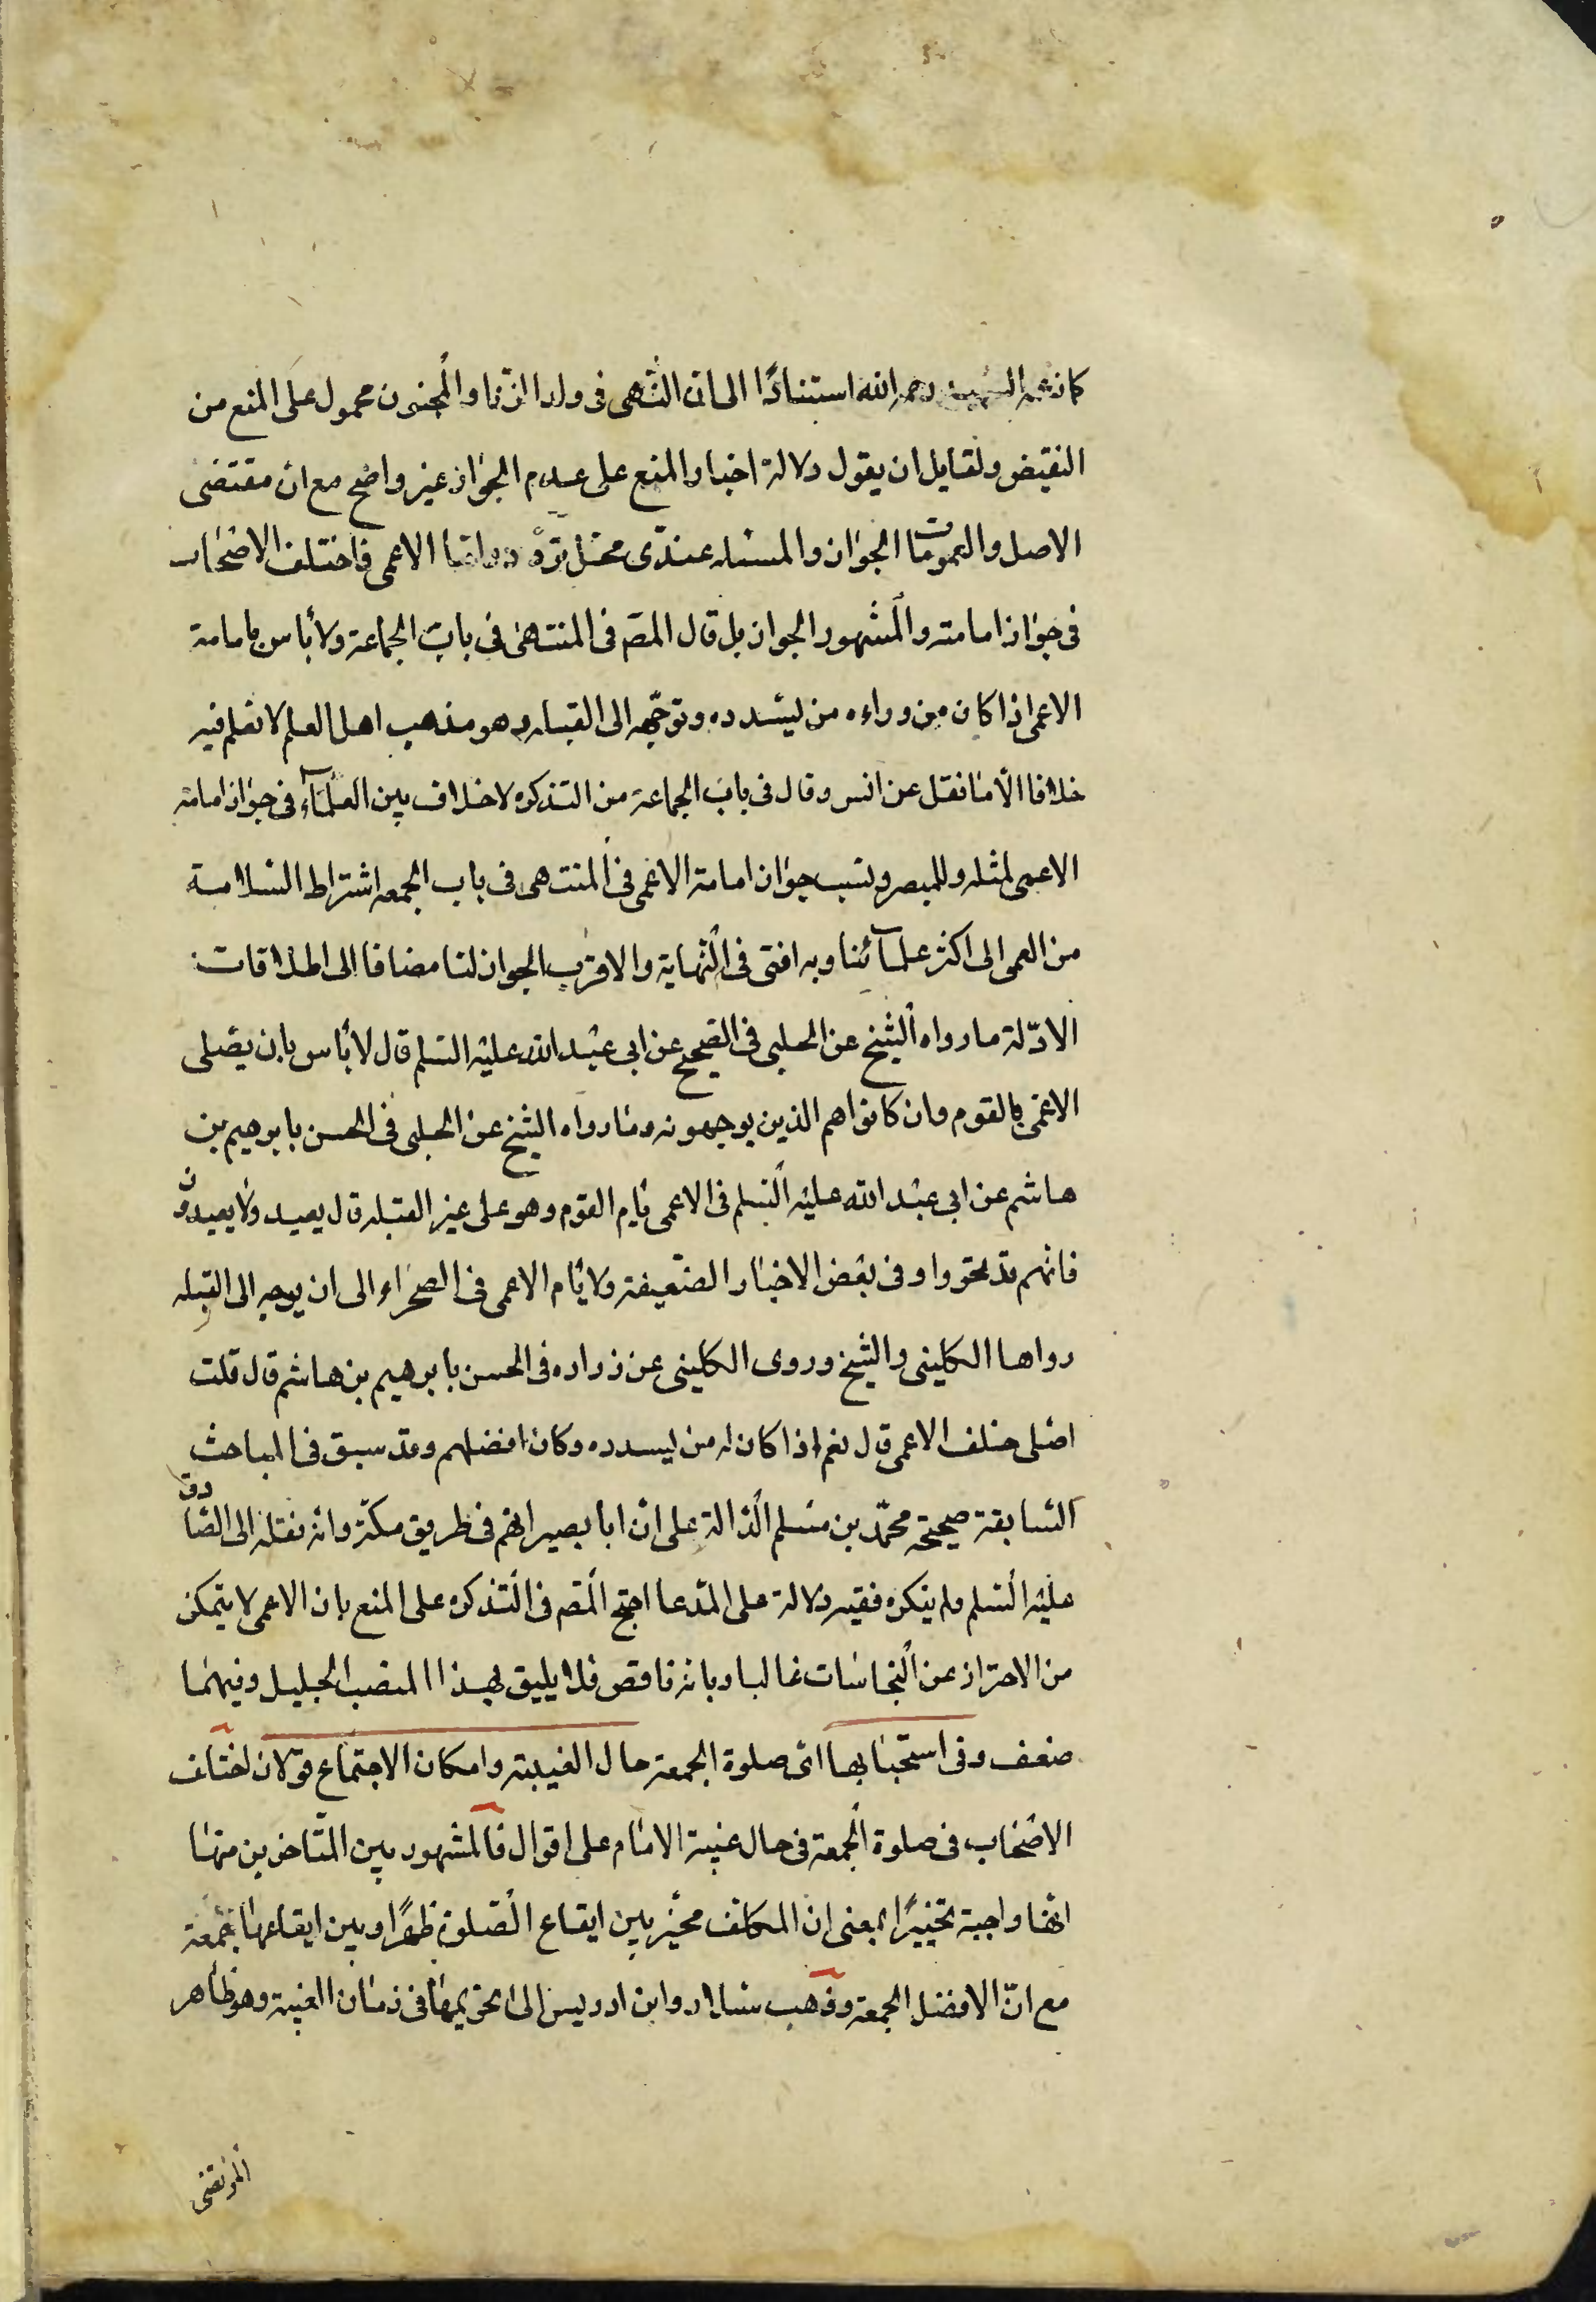 كما زعمه الشهيد رحمه الله استنادًا الى ان النهى فى ولد الزنا والمجنون محمول على المنع من
النقيض ولقايل ان يقول دلالة اخبار المنع على عدم الجواز غير واضح مع ان مقتضى
الاصل والعمومات الجواز والمسئله عندى محل تردد واما الاعمى فاختلف الاصحاب
فى جواز امامته والمشهور الجواز بل قال المصّ فى المنتهى فى باب الجماعة ولا بأس بامامة
الاعمى اذا كان من وراءه من يسدده وتوجّهه الى القبله وهو مذهب اهل العلم لا نعلم فيه
خلافا الا ما نقل عن انس وقال فى باب الجماعة من التذكره لا خلاف بين العلمآء فى جواز امامة
الاعمى لمثله وللمبصر ونسب جواز امامة الاعمى فى المنتهى فى باب الجمعه اشتراط السلامة
من العمى الى اكثر علمآئنا وبه افتى فى النهاية والاقرب الجواز لنا مضافا الى اطلاقات
الادّلة ما رواه الشيخ عن الحلبى فى الصحيح عن ابى عبد الله عليه السلم قال لا بأس بان يصلى
الاعمى بالقوم وان كانوا هم الذين يوجهونه وما رواه الشيخ عن الحلبى فى الحسن بابرهيم بن
هاشم عن ابى عبد الله عليه السلم فى الاعمى يام القوم وهو على غير القبله قال يعيد ولا يعيدون
فانهم قد تحروا وفى بعض الاخبار الضعيفة ولا يام الاعمى فى الصحراء الى ان يوجه الى القبله
رواها الكلينى والشيخ وروى الكلينى عن زراره فى الحسن بابرهيم بن هاشم قال قلت
اصلى خلف الاعمى قال نعم اذا كان له من يسدده وكان افضلهم وقد سبق فى المباحث
السابقة صحيحة محمّد بن مسلم الدالة على ان ابا بصير امّهم فى طريق مكّة وانه نقله الى الصادق
عليه السلم ولم ينكره ففيه دلالة على المدعا احتج المصّ فى التذكره على المنع بان الاعمى لا يتمكن
من الاحتراز عن النجاسات غالبا وبانه ناقص فلا يليق بهذا المنصب الجليل وفيهما
ضعف وفى استحبابها اى صلوة الجمعة حال الغيبة وامكان الاجتماع قولان اختلف
الاصحاب فى صلوة الجمعة فى حال غيبة الامام على اقوال فالمشهور بين المتاخرين منها
انها واجبة تخييرًا بمعنى ان المكلف مخيّر بين ايقاع الصلوة ظهرًا وبين ايقاعها جمعة
مع انّ الافضل الجمعة وذهب سلار وابن ادريس الى تحريمها فى زمان الغيبة وهو ظاهر
المرتضى